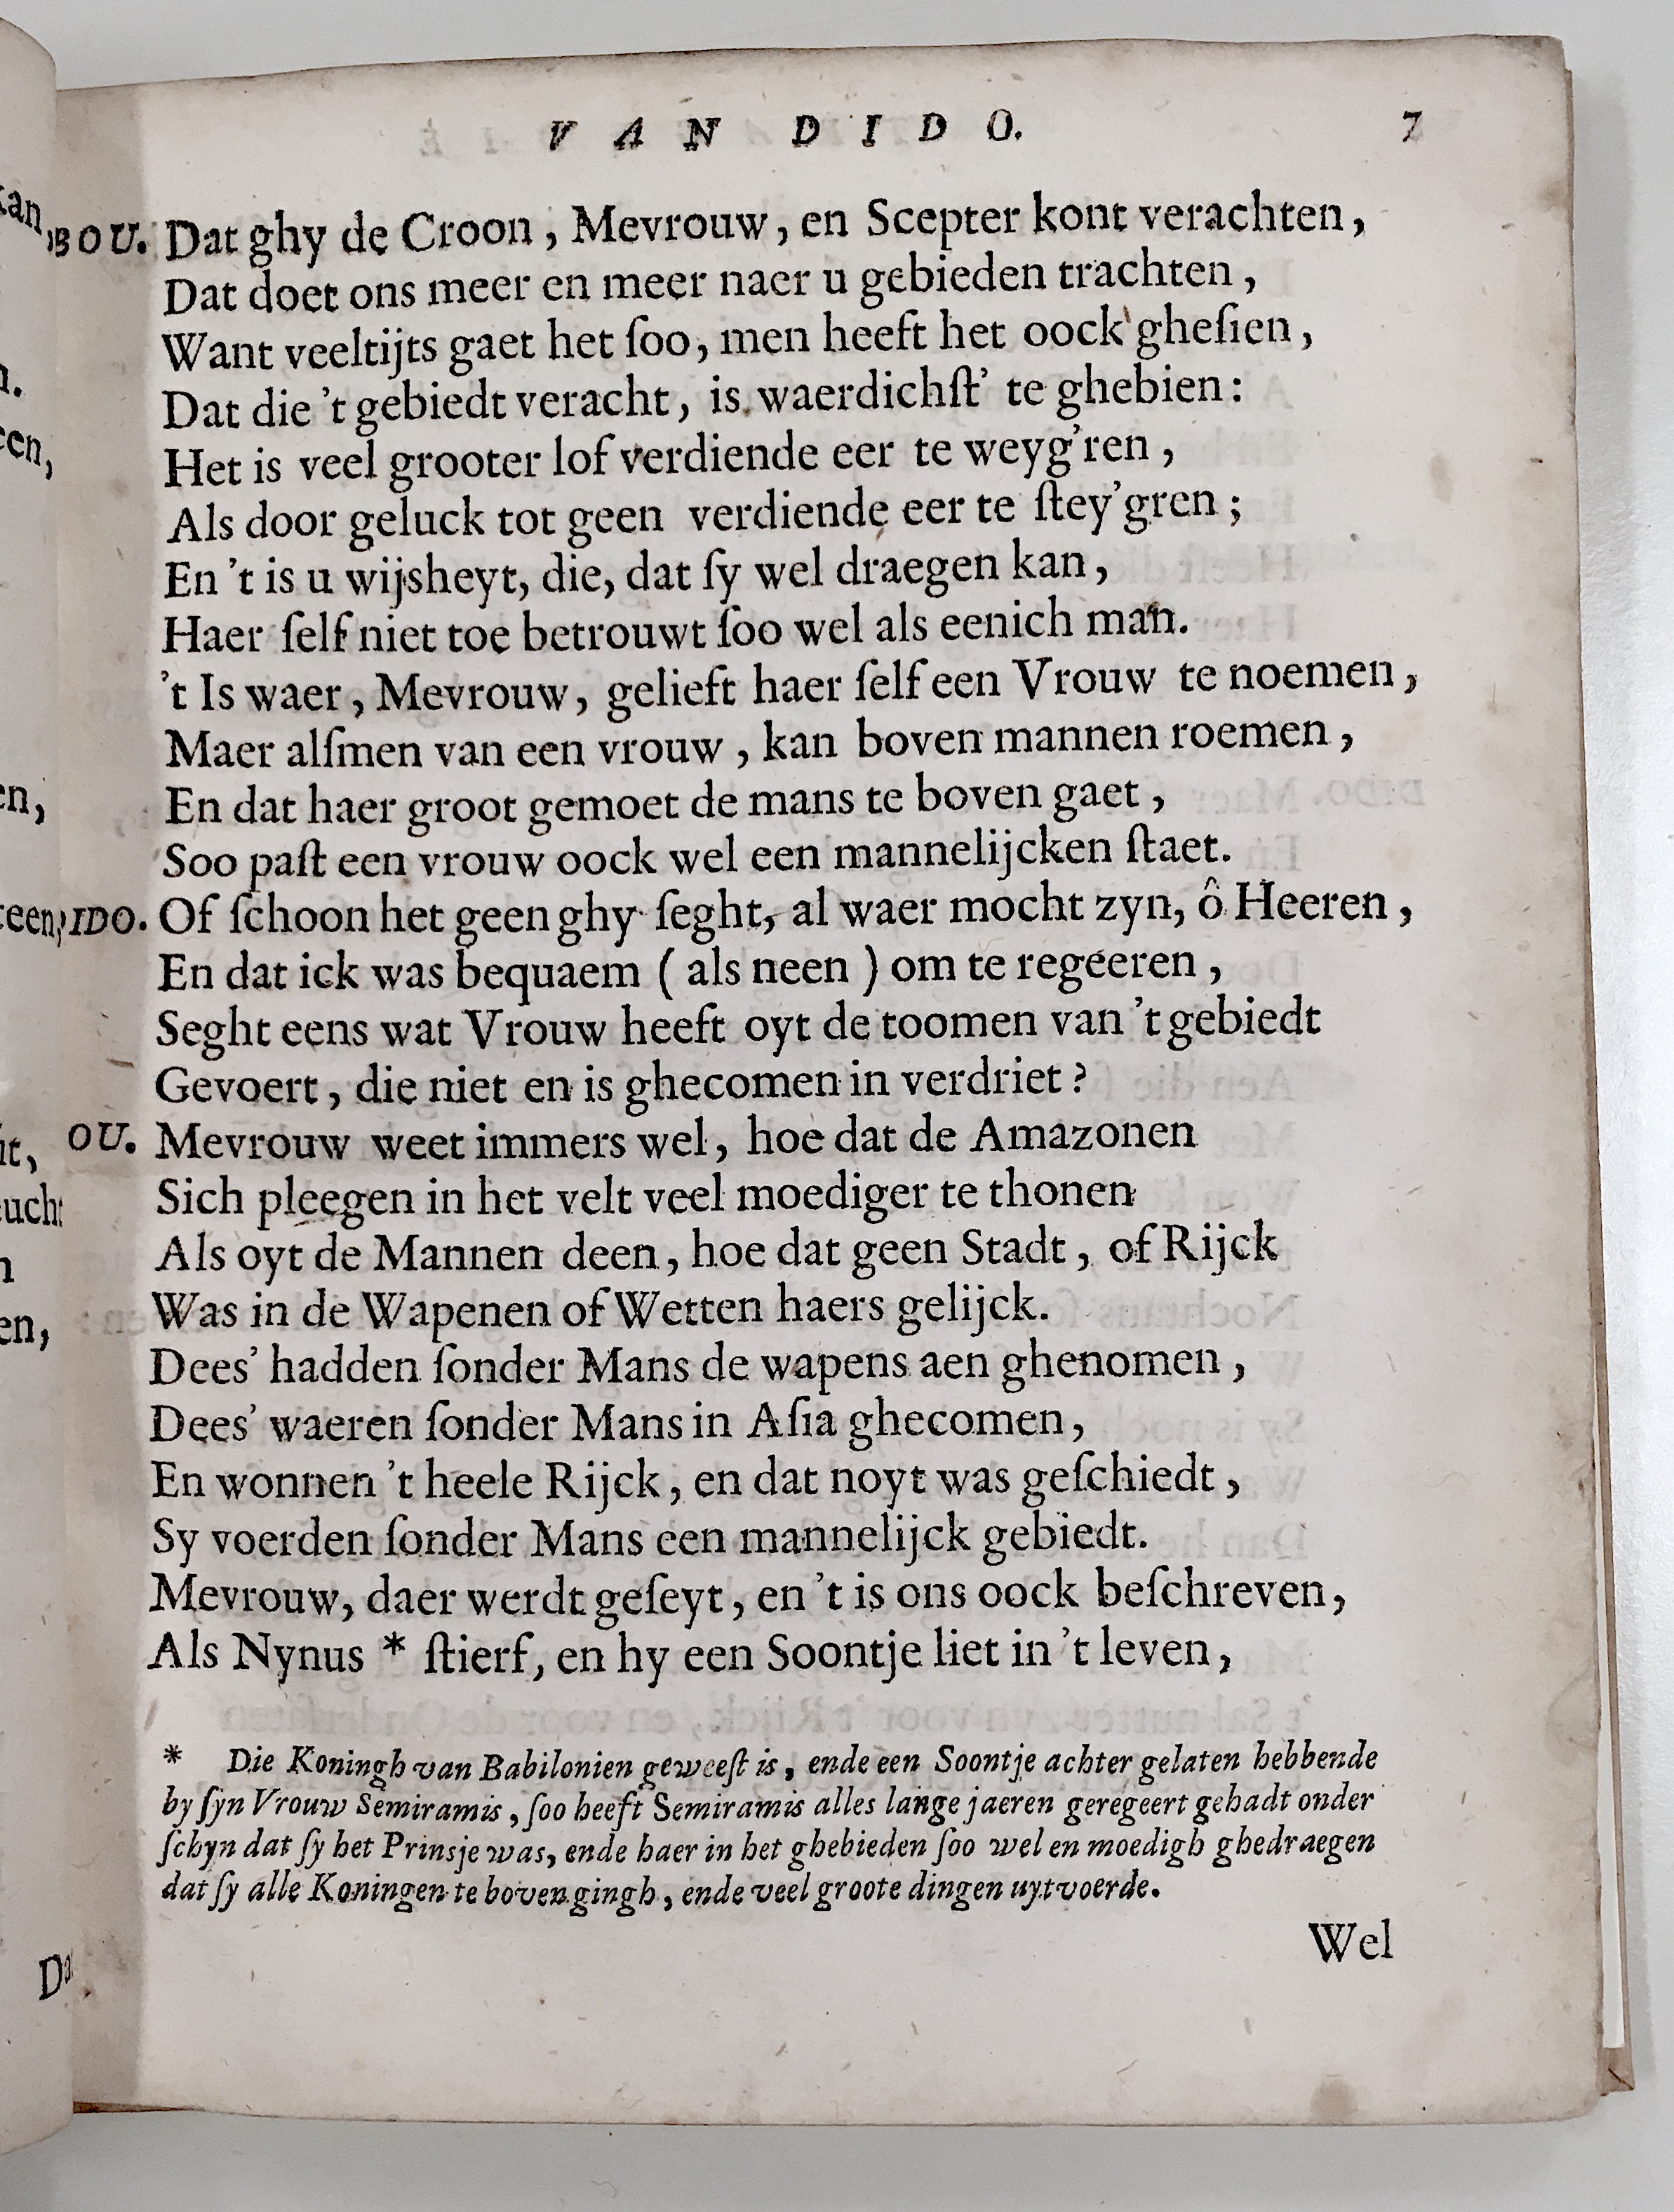 VAN DIDO. 7
BOU. Dat ghy de Croon, Mevrouw, en Scepter kont verachten,
Dat doet ons meer en meer naer u gebieden trachten,
Want veeltijts gaet het ſoo, men heeft het oock gheſien,
Dat die 't gebiedt veracht, is waerdichſt' te ghebien:
Het is veel grooter lof verdiende eer te weyg'ren,
Als door geluck tot geen verdiende eer te ſtey'gren;
En 't is u wijsheyt, die, dat ſy wel draegen kan,
Haer ſelf niet toe betrouwt ſoo wel als eenich man.
't Is waer, Mevrouw, gelieft haer ſelf een Vrouw te noemen,
Maer alſmen van een vrouw, kan boven mannen roemen,
En dat haer groot gemoet de mans te boven gaet,
Soo paſt een vrouw oock wel een mannelijcken ſtaet.
IDO. Of ſchoon het geen ghy ſeght, al waer mocht zyn, ô Heeren,
En dat ick was bequaem (als neen) om te regeeren,
Seght eens wat Vrouw heeft oyt de toomen van 't gebiedt
Gevoert, die niet en is ghecomen in verdriet?
OU. Mevrouw weet immers wel, hoe dat de Amazonen
Sich pleegen in het velt veel moediger te thonen
Als oyt de Mannen deen, hoe dat geen Stadt, of Rijck
Was in de Wapenen of Wetten haers gelijck.
Dees' hadden ſonder Mans de wapens aen ghenomen,
Dees' waeren ſonder Mans in Aſia ghecomen,
En wonnen 't heele Rijck, en dat noyt was geſchiedt,
Sy voerden ſonder Mans een mannelijck gebiedt.
Mevrouw, daer werdt geſeyt, en 't is ons oock beſchreven,
Als Nynus * ſtierf, en hy een Soontje liet in 't leven,
* Die Koningh van Babilonien geweeſt is, ende een Soontje achter gelaten hebbende
by ſyn Vrouw Semiramis, ſoo heeft Semiramis alles lange jaeren geregeert gehadt onder
ſchyn dat ſy het Prinsje was, ende haer in het ghebieden ſoo wel en moedigh ghedraegen
dat ſy alle Koningen te boven gingh, ende veel groote dingen uytvoerde.
Wel